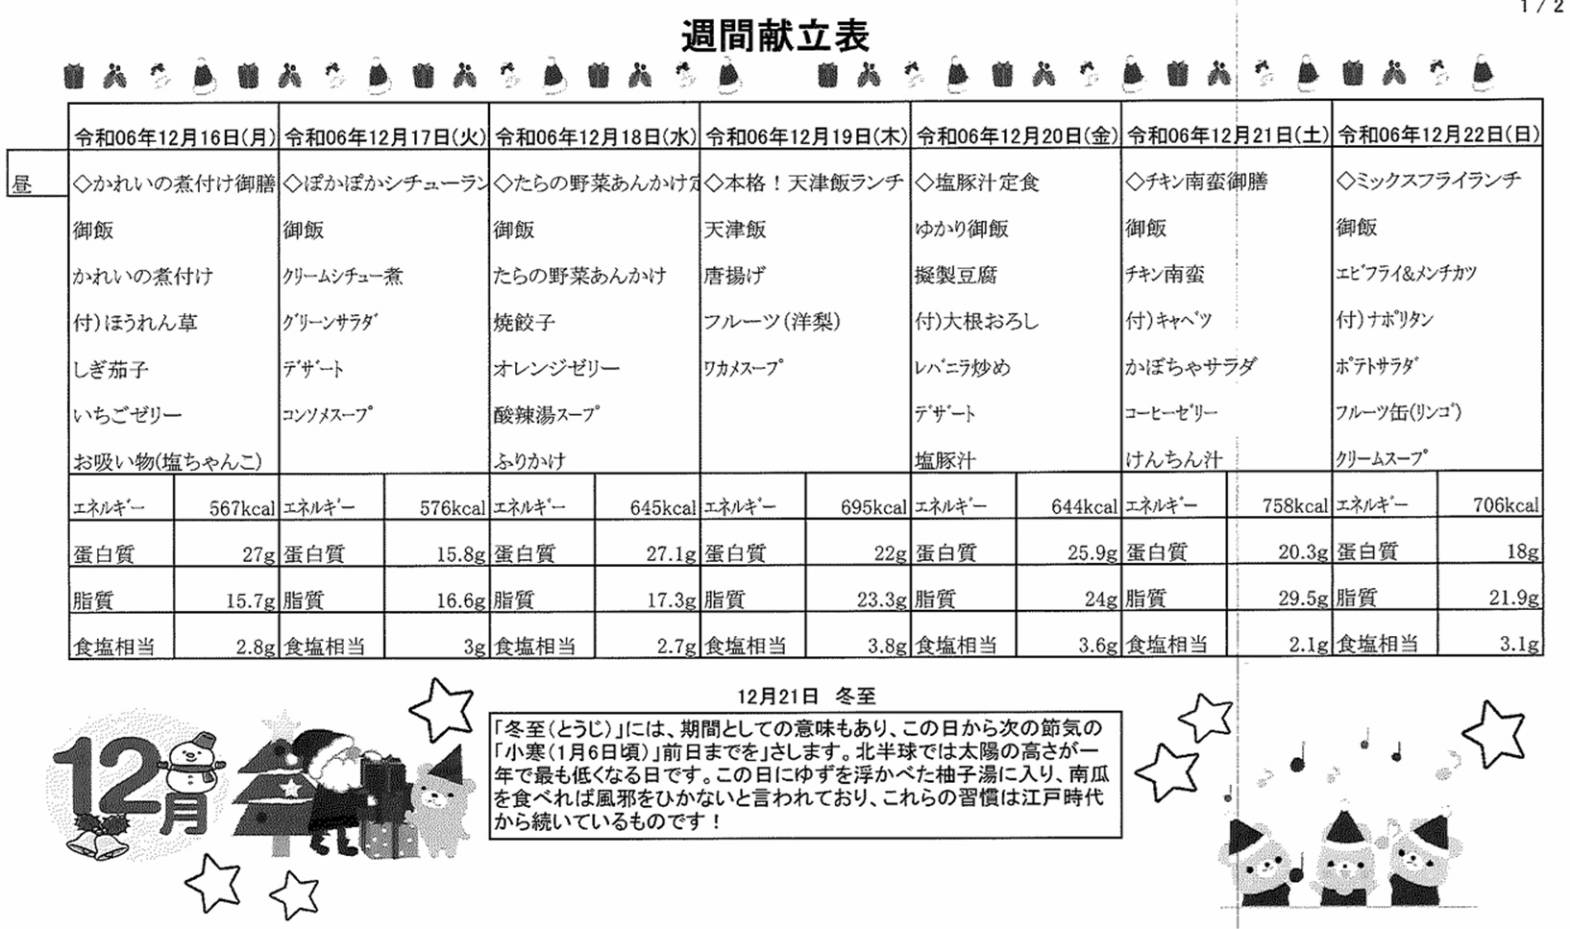 1 / 2
週間献立表
令和06年12月16日(月) 令和06年12月17日(火) 令和06年12月18日(水) 令和06年12月19日(木) 令和06年12月20日(金) 令和06年12月21日(土) 令和06年12月22日(日)
昼 ◇かれいの煮付け御膳 ◇ぽかぽかシチューラン ◇たらの野菜あんかけ定 ◇本格！天津飯ランチ ◇塩豚汁定食 ◇ﾁｷﾝ南蛮御膳 ◇ミックスフライランチ
御飯 御飯 御飯 天津飯 ゆかり御飯 御飯 御飯
かれいの煮付け ｸﾘｰﾑｼﾁｭｰ煮 たらの野菜あんかけ 唐揚げ 擬製豆腐 ﾁｷﾝ南蛮 ｴﾋﾞﾌﾗｲ&ﾒﾝﾁｶﾂ
付)ほうれん草 ｸﾞﾘｰﾝｻﾗﾀﾞ 焼餃子 フルーツ(洋梨) 付)大根おろし 付)ｷｬﾍﾞﾂ 付)ﾅﾎﾟﾘﾀﾝ
しぎ茄子 ﾃﾞｻﾞｰﾄ オレンジゼリー ﾜｶﾒｽｰﾌﾟ ﾚﾊﾞﾆﾗ炒め かぼちゃサラダ ﾎﾟﾃﾄｻﾗﾀﾞ
いちごゼリー ｺﾝｿﾒｽｰﾌﾟ 酸辣湯ｽｰﾌﾟ ﾃﾞｻﾞｰﾄ ｺｰﾋｰｾﾞﾘｰ フルーツ缶(ﾘﾝｺﾞ)
お吸い物(塩ちゃんこ) ふりかけ 塩豚汁 けんちん汁 ｸﾘｰﾑｽｰﾌﾟ
ｴﾈﾙｷﾞｰ 567kcal ｴﾈﾙｷﾞｰ 576kcal ｴﾈﾙｷﾞｰ 645kcal ｴﾈﾙｷﾞｰ 695kcal ｴﾈﾙｷﾞｰ 644kcal ｴﾈﾙｷﾞｰ 758kcal ｴﾈﾙｷﾞｰ 706kcal
蛋白質 27g 蛋白質 15.8g 蛋白質 27.1g 蛋白質 22g 蛋白質 25.9g 蛋白質 20.3g 蛋白質 18g
脂質 15.7g 脂質 16.6g 脂質 17.3g 脂質 23.3g 脂質 24g 脂質 29.5g 脂質 21.9g
食塩相当 2.8g 食塩相当 3g 食塩相当 2.7g 食塩相当 3.8g 食塩相当 3.6g 食塩相当 2.1g 食塩相当 3.1g
12月21日　冬至
「冬至(とうじ)」には、期間としての意味もあり、この日から次の節気の
「小寒(1月6日頃)」前日までを」さします。北半球では太陽の高さが一
年で最も低くなる日です。この日にゆずを浮かべた柚子湯に入り、南瓜
を食べれば風邪をひかないと言われており、これらの習慣は江戸時代
から続いているものです！
12月